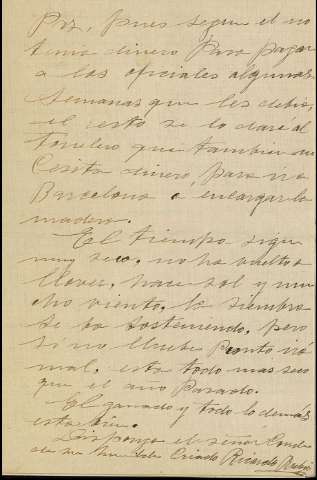 Paz, pues segun el no
tenia dinero para pagar
a los oficiales algunas
semanas que les debia,
el resto se lo daré al
tonelero que tambien ne
cesita dinero, para ir a
Barcelona a encargar la
madera.
El tiempo sigue
muy seco, no ha vuelto a
llover, hace sol y mu
cho viento, la siembra
se va sosteniendo, pero
si no llueve pronto irá
mal, esta todo mas seco
que el año pasado.
El ganado y todo lo demás
esta bien.
Disponga el señor Conde
de su humilde Criado Ricardo Rubio